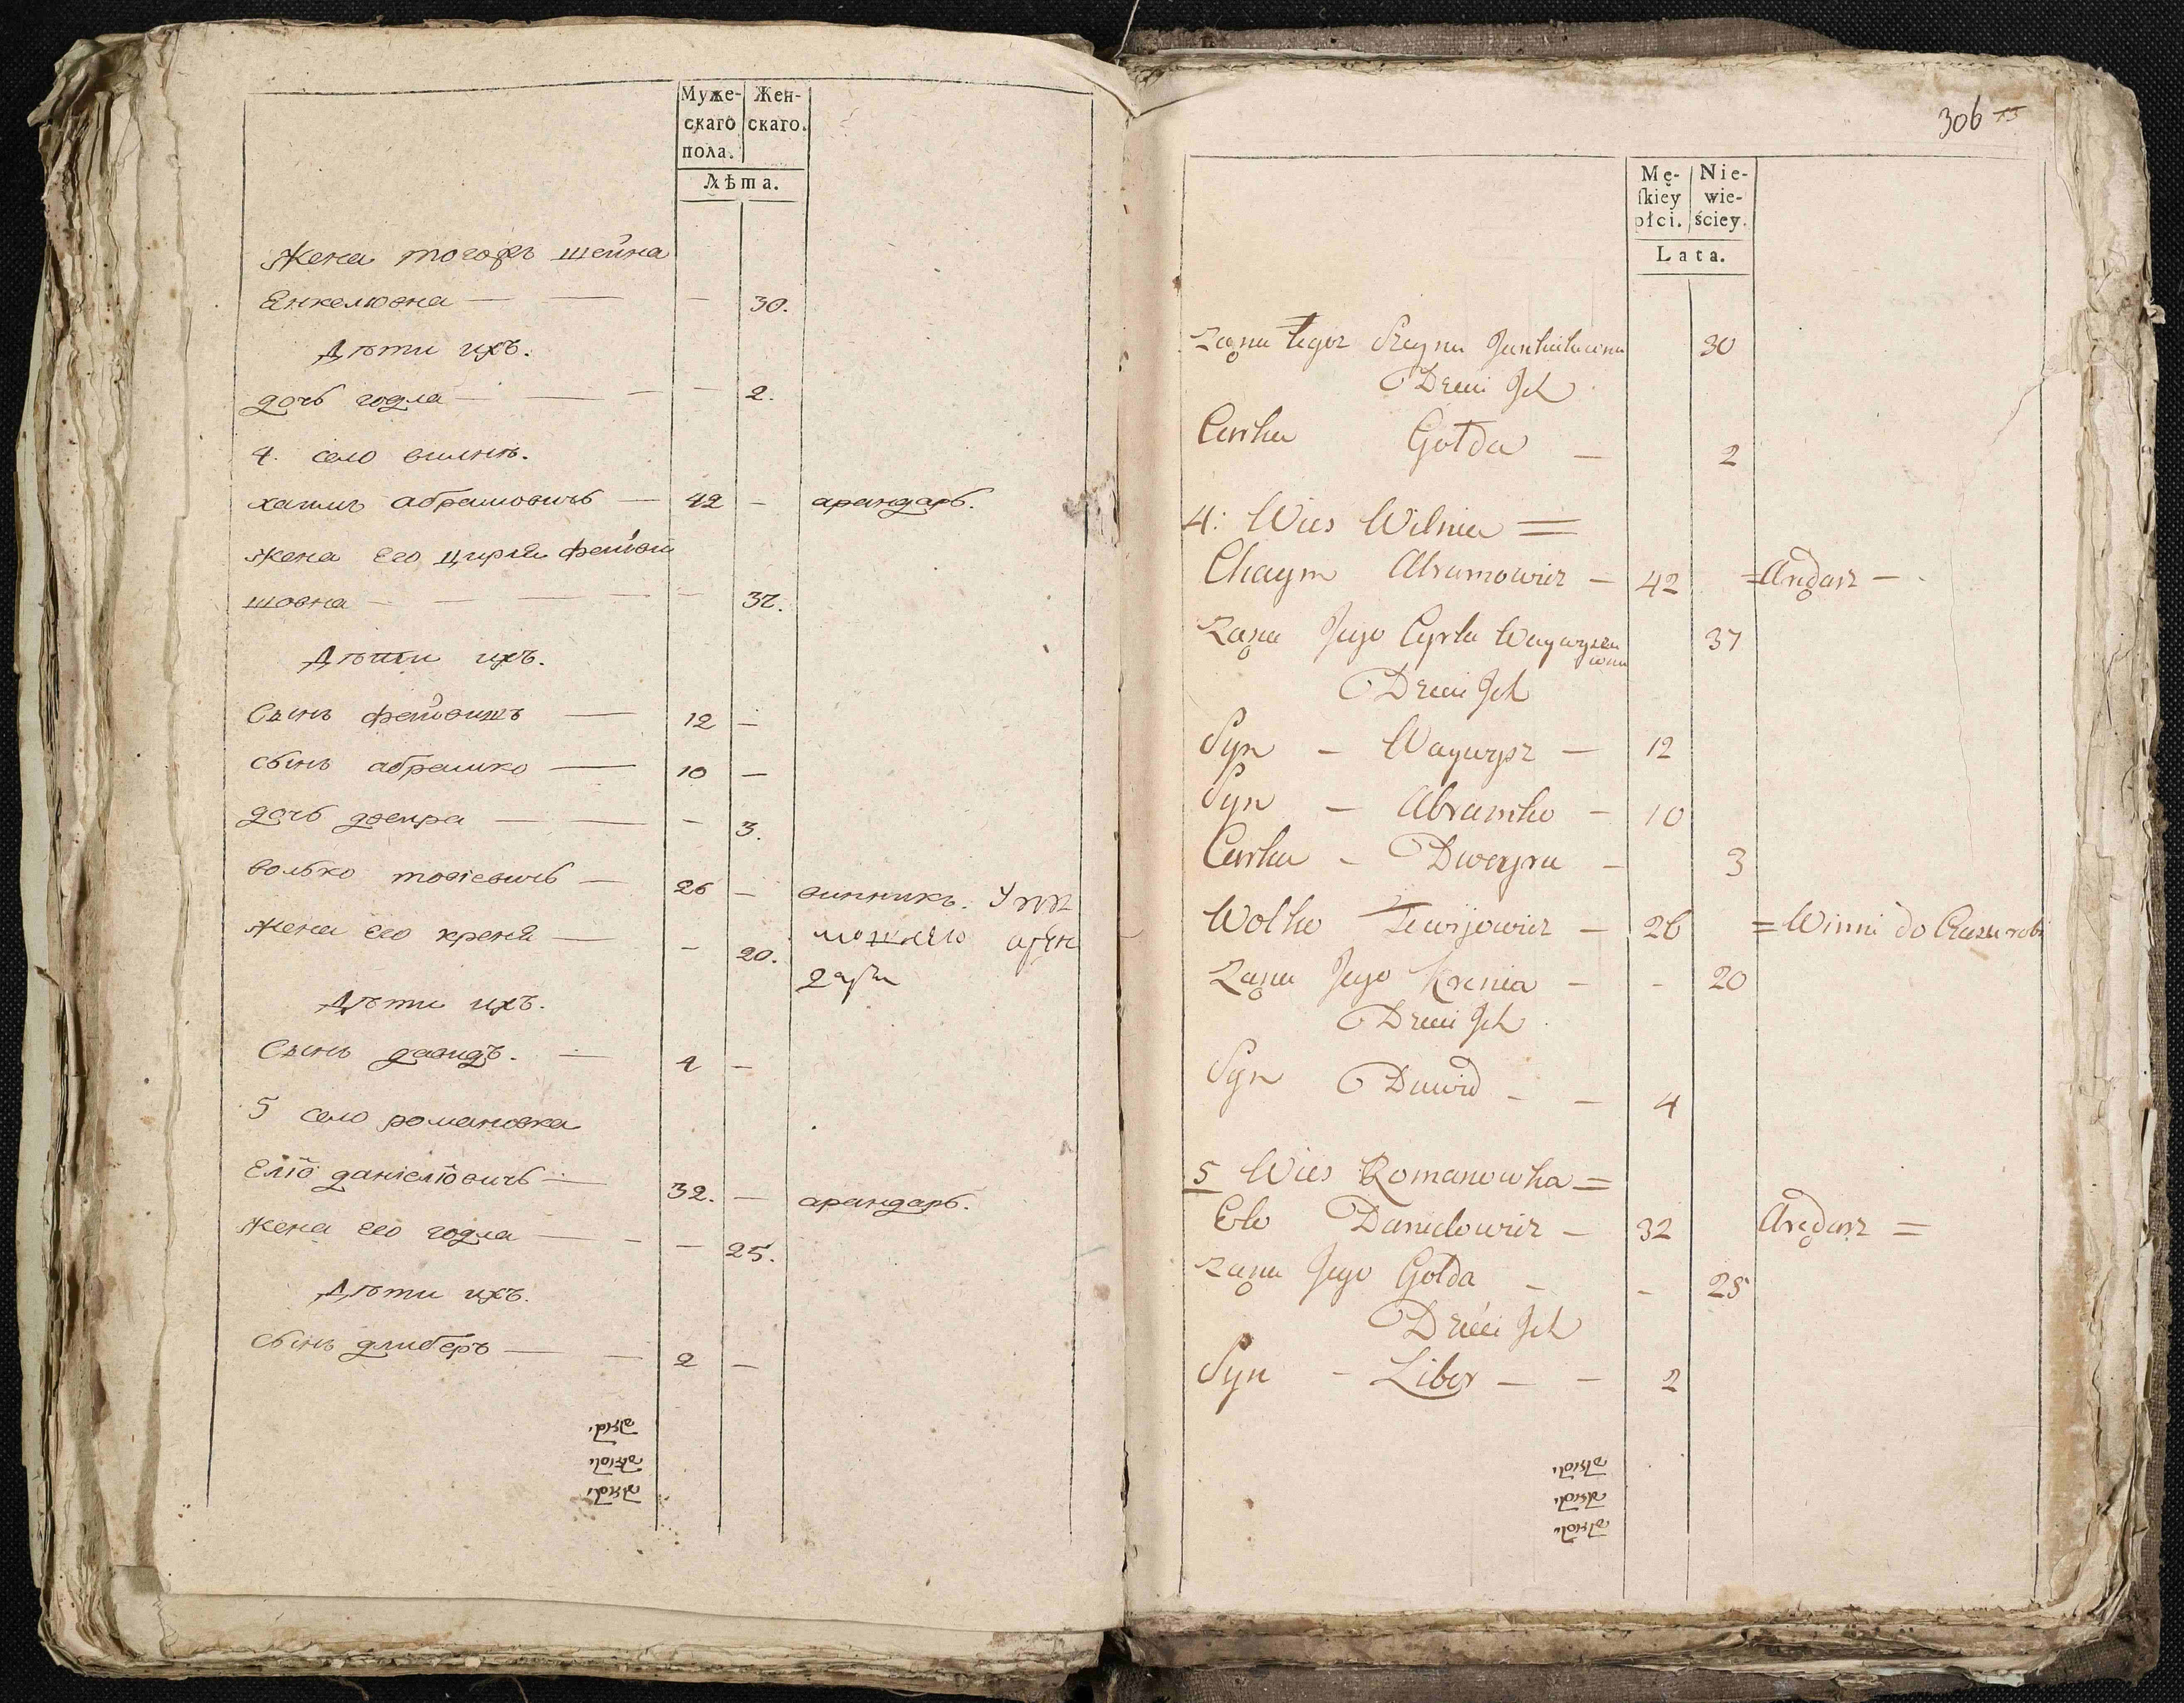 Муже-
скаго
пола.
Жен-
скаго.
Лѣта.
Жена тогожъ шейна
Енкелювна — — — 30.
Дѣти ихъ.
дочь годла — — — — 2.
4. село вилнѣ.
хаимъ абрамовичь — 42 — арандарь.
жена его цирля фейви
шовна — — — — — 37.
Дѣти ихъ.
Сынъ фейвишъ — 12 —
сынъ абрашко — 10 —
дочь двеира — — — 3.
волько товіевичь — 26 — винникъ. У
жена его креня — — 20.
Дѣти ихъ.
Сынъ давидъ. — 4 —
5 село романовка
Еліо даніеліовичь — 32. — арандарь.
жена его годла — — — 25.
Дѣти ихъ.
сынъ длиберъ — — 2 —
306
Mę-
skiey
płci.
Nie-
wie-
ściey.
Lata.
Zona tegoz Szeyna Jankielowna 30
Dzieci Jch
Curka Gołda — 2
4: Wies Wilnia =
Chaym Abramowicz — 42 = Arędarz —
Zona Jego Cyrla Waywyszo
wna 37
Dzieci Jch
Syn — Waywysz — 12
Syn — Abramko — 10
Curka — Dweyra — 3
Wolko Tewijowicz — 26 = Winni do
Zona Jego Krenia — - 20
Dzieci Jch
Syn Dawid — — 4
5 Wies Romanowka =
Elo Danielowicz — 32 Arędarz =
Zona Jego Gołda — - 25
Dzieci Jch
Syn — Libor — — 2